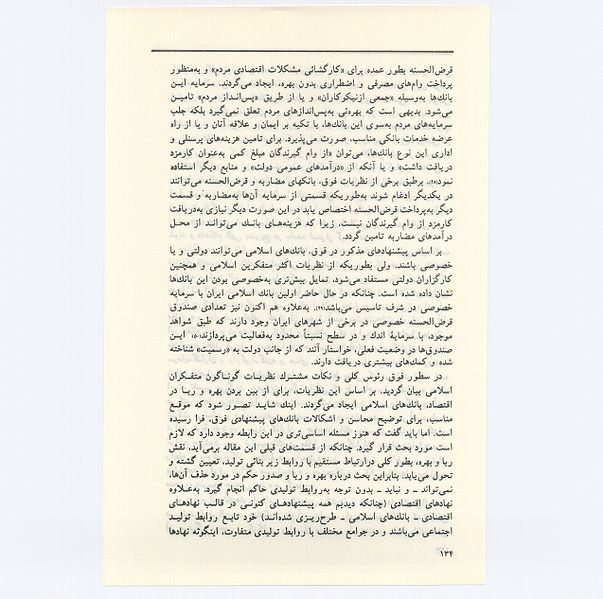 قرض‌الحسنه بطور عمده برای «کارگشائی مشکلات اقتصادی مردم» و به‌منظور
پرداخت وام‌های مصرفی و اضطراری بدون بهره، ایجاد می‌گردند. سرمایه ایـن
بانك‌ها به‌وسیله «جمعی ازنیکوکاران» و یا از طریق «پس‌انـداز مردم» تامیـن
می‌شود. بدیهی است که بهره‌ئی به‌پس‌اندازهای مردم تعلق نمی‌گیرد بلکه جلب
سرمایه‌های مردم به‌سوی این بانك‌ها، با تکیه بر ایمان و علاقه آنان و یا از راه
عرضه خدمات بانکی مناسب، صورت می‌پذیرد. برای تامین هزینه‌های پرسنلی و
اداری این نوع بانك‌ها، می‌توان «از وام گیرندگان مبلغ کمی به‌عنوان کارمزد
دریافت داشت» و یا آنکه از «درآمدهای عمومی دولت» و منابع دیگر استفاده
نمود. برطبق برخی از نظریات فوق، بانکهای مضاربه و قرض‌الحسنه می‌توانند
در یکدیگر ادغام شوند به‌طوریکه قسمتی از سرمایه آن‌ها به‌مضاربه و قسمت
دیگر به‌پرداخت قرض‌الحسنه اختصاص یابد در این صورت دیگر نیازی به‌دریافت
کارمزد از وام گیرندگان نیست، زیرا که هزینه‌هـای بانـك می‌توانـد از محـل
درآمدهای مضاربه تامین گردد.
بر اساس پیشنهادهای مذکور در فوق، بانك‌های اسلامی می‌توانند دولتی و یا
خصوصی باشند. ولی بطوریکه از نظریات اکثر متفکرین اسلامی و همچنین
کارگزاران دولتی مستفاد می‌شود، تمایل بیش‌تری به‌خصوصی بودن این بانك‌ها
نشان داده شده است. چنانکه در حال حاضر اولین بانك اسلامی ایران با سرمایه
خصوصی در شرف تاسیس می‌باشد. به‌علاوه هم اکنون نیز تعدادی صندوق
قرض‌الحسنه خصوصی در برخی از شهرهای ایران وجود دارند که طبق شواهد
موجود، با سرمایهٔ اندك و در سطح نسبتاً محدود به‌فعالیت می‌پردازند. ایـن
صندوق‌ها در وضعیت فعلی، خواستار آنند که از جانب دولت به «رسمیت» شناخته
شده و کمك‌های بیشتری دریافت دارند.
در سطور فوق رئوس کلی و نکات مشتـرك نظریـات گونـاگون متفـکران
اسلامی بیان گردید. بر اساس این نظریات، برای از بین بردن بهره و ربـا در
اقتصاد، بانك‌های اسلامی ایجاد می‌گردند. اینك شایـد تصـور شود که موقـع
مناسب، برای توضیح محاسن و اشکالات بانك‌های پیشنهادی فوق، فرا رسیده
است. اما باید گفت که هنوز مسئله اساسی‌تری در این رابطه وجود دارد که لازم
است مورد بحث قرار گیرد. چنانکه از قسمت‌های قبلی این مقاله برمی‌آید، نقش
ربا و بهره، بطور کلی درارتباط مستقیم با روابط زیر بنائی تولید، تعیین گشته و
تحول می‌یابد. بنابراین بحث درباره بهره و ربا و صدور حکم در مورد حذف آن‌ها،
نمی‌تواند ـ و نباید ـ بدون توجه به‌روابط تولیدی حاکم انجام گیرد. به‌عـلاوه
نهادهای اقتصادی (چنانکه دیدیم همه پیشنهادهـای کنونـی در قالـب نهادهـای
اقتصادی ـ بانك‌های اسلامی ـ طرح‌ریـزی شده‌انـد) خود تابـع روابط تولیـد
اجتماعی می‌باشند و در جوامع مختلف با روابط تولیدی متفاوت، اینگونه نهادها
۱۳۴